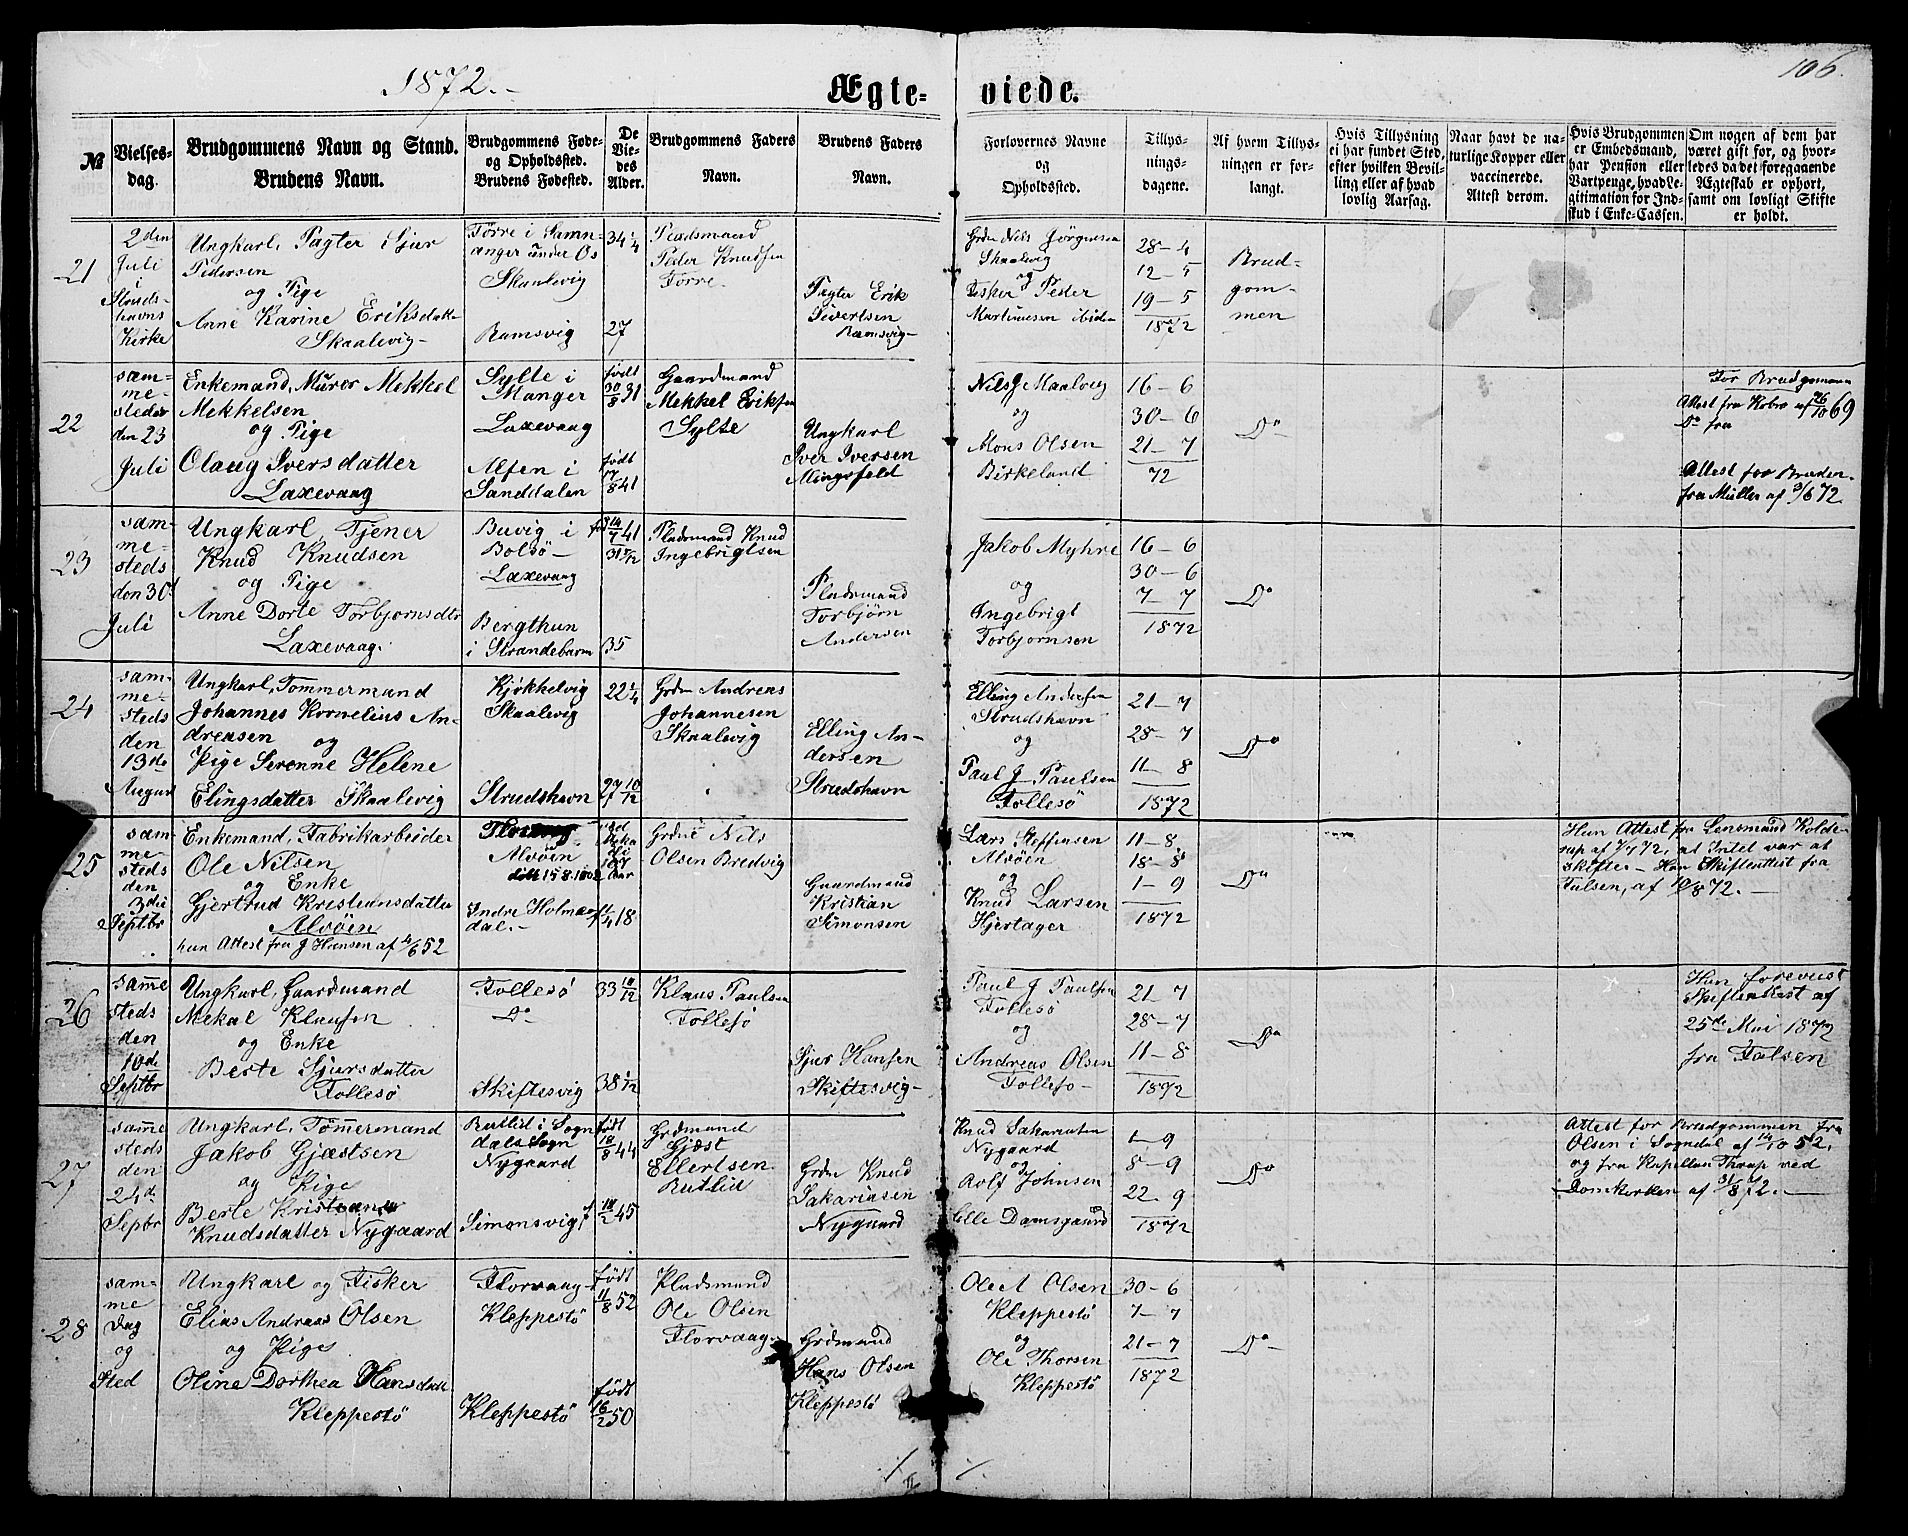 1872.
Ægte-
viede.
106.
№
Vielses-
dag.
Brudgommens Navn og Stand.
Brudens Navn.
Brudgommens Føde-
og Opholdssted.
Brudens Fødested.
De
Vie-
des
Alder.
Brudgommens Faders
Navn.
Brudens Faders
Navn.
Forlovernes Navne
og
Opholdssted.
Tillys-
nings-
dagene.
Af hvem Tillys-
ningen er for-
langt.
Hvis Tillysning
ei har fundet Sted,
efter hvilken Bevil-
ling eller af hvad
lovlig Aarsag.
Naar havt de na-
turlige Kopper eller
vaccinerede.
Attest derom.
Hvis Brudgommen
er Embedsmand,
har Pension eller
Vartpenge, hvad Le-
gitimation for Ind-
skud i Enke-Cassen.
Om nogen af dem har
været gift før, og hvor-
ledes da det foregaaende
Ægteskab er ophørt,
samt om lovligt Skifte
er holdt.
21
2den
Juli
i
Struds-
havns
Kirke
Ungkarl, Pagter Sjur
Pedersen
og Pige
Anne Karine Eriksdatt
Skaalevig
Tørre i Samn-
anger under Os
Skaalevig
Ramsvig
34 1/4
27
Pladsmand
Peder Knudsen
Tørre.
Pagter Erik
Sivertsen
Ramsvig
Grdm Nils Jörgensen
Skaalvig
og
Fisker Peder
Martinusen ibidm
28-4
12-5
19-5
1872
Brud-
gom-
men
22
sam-
me-
steder
den 23
Juli
Enkemand, Murer Mekkel
Mekkelsen
og Pige
Olaug Iversdatter
Laxevaag
Sylte i
Manger
Laxevaag
Alfen i
Sanddalen
født
30/8 31
født
17/8 41
Gaardmand
Mekkel Eriksen
Sylte
Ungkarl
Iver Iversen
Mingsfeld
Nils J Maalvig
og
Mons Olsen
Birkeland
16-6
30-6
21-7
72
Do
For Brudgommen
Attest fra Kobro af 26/10 69
Do fra
Attest for Bruden
fra Müller af 3/6 72
23
sam-
me-
steds
den 30d
Juli
Ungkarl, Tjener
Knud Knudsen
og Pige
Anne Dorte Torbjornsdtr
Laxevaag
Buvig i
Bolsø
Laxevaag
Bergthun
i Strandebarm
35
Pladsmand Knud
Ingebrigtsen
Pladsmand
Torbjørn
Andersen
Jakob Myhre
og
Ingebrigt
Torbjornsen
16-6
30-6
7-7
1872
Do
24
sam-
me-
steds
den
13de
August
Ungkarl, Tømmermand
Johannes Kornelius An-
dreasen og
Pige Serenne Helene
Elingsdatter Skaalevig
Kjøkkelvig
Skaalevig
Strudshavn
22 1/4
27 10/12
Grdm Andreas
Johannesen
Skaalevig
Elling An-
dersen
Strudshavn
Elling Andersen
Strudshavn
og
Paul J Paulsen
Follesö
21-7
28-7
11-8
1872
Do
25
sam-
me-
steds
den
3die
Septbr
Enkemand, Fabrikarbeider
Ole Nilsen
og Enke
Gjertrud Kristiansdatter
Alvöen
hun Attest fra J Hansen af 6/6 52
Alvöen
Indre Holme
dal.
1/4 18
Grdm Nils
Olsen Bredvig
Gaardmand
Kristian
Simonsen
Lars Steffensen
Alvöen
og
Knud Larsen
Hjertager
11-8
18-8
1-9
1872
Do
Hun Attest fra Lensmand Kolde-
rup af 7/7 72, at Intet var at
skifte. Han Skifteattest fra
Falsen, af 10/8 72.
26
samme
steds
den
10de
Septbr
Ungkarl, Gaardmand
Mekal Klausen
og Enke
Berte Sjursdatter
Follesö
Follesö
Do
Skiftesvig
33 10/12
38 1/12
Klaus Paulsen
Follesö
Sjur Hansen
Skiftesvig
Paul J Paulsen
Follesö
og
Andreas Olsen
Follesö
21-7
28-7
11-8
1872
Do
Hun forevist
Skifteattest af
25de Mai 1872
fra Falsen
27
samme
steds
den
24d
Sepbr
Ungkarl, Tömmermand
Jakob Gjæstsen
og Pige
Berte Kristiane
Knudsdatter Nygaard
Rutlid i Sogn
dals Sogn
Nygaard
Simonsvig
født
18/8 44
f 10/2 45
Grdmand
Gjæst
Ellertsen
Rutlid
Grdm Knud
Sakariasen
Nygaard
Knud Sakariasen
Nygaard
og
Rolf Johnsen
Lille Damsgaard
1-9
8-9
22-9
1872
Do
Attest for Brudgommen fra
Olsen i Sogndal af 14/10 52
og fra Kapellan Thrap ved
Domkirken af 31/8 72.
28
sam-
me
Dag
og
Sted
Ungkarl og Fisker
Elias Andreas Olsen
og Pige
Oline Dorthea Hansdatt
Kleppestö
Florvaag
Kleppestö
Kleppestö
født
11/8 52
født
16/2 50
Pladsmand
Ole Olsen
Florvaag
Grdmand
Hans Olsen
Kleppestö
Ole A Olsen
Kleppestö
og
Ole Thorsen
Kleppestö
30-6
7-7
21-7
1872
Do